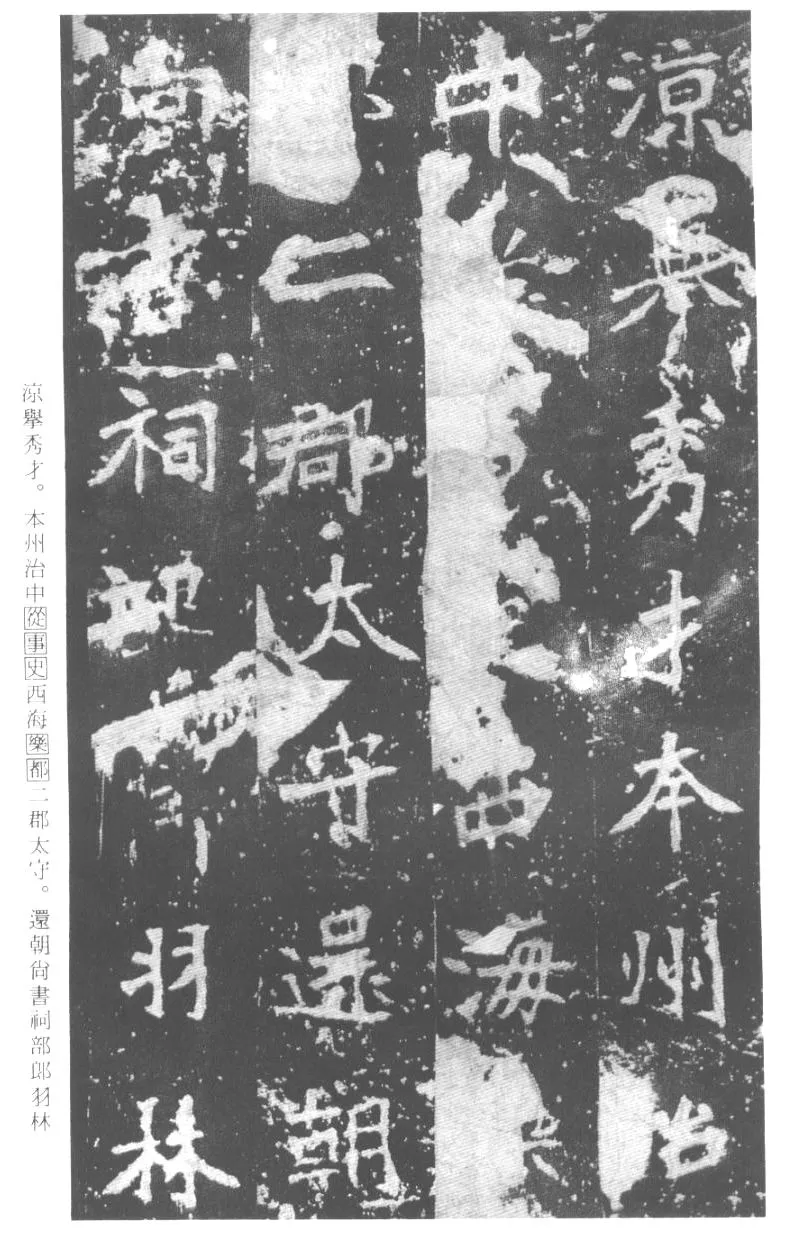 涼舉秀才本州治
中西海
二郡太守還朝
尚書祠部郎羽林
涼舉秀才。本州治中從事史西海樂都二郡太守。還朝尙書祠部郎羽林